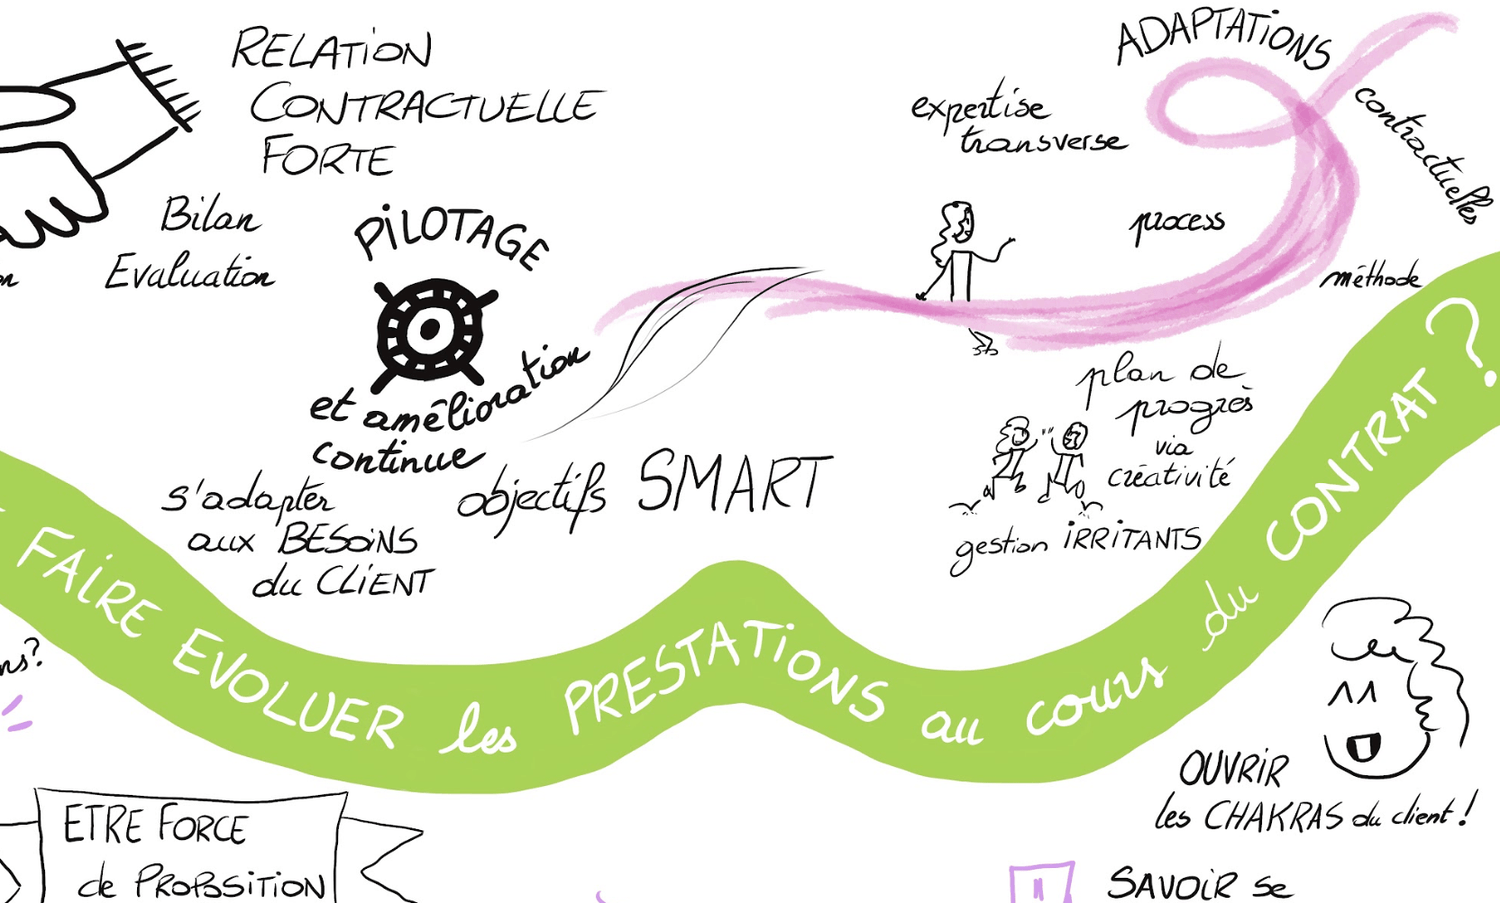 RELATION
CONTRACTUELLE
FORTE
Bilan
Evaluation
PILOTAGE
et amélioration
continue
s'adapter
aux BESOINS
du CLIENT
objectifs SMART
ADAPTATIONS
contractuelles
expertise
transverse
process
méthode
plan de
progrès
via
créativité
gestion IRRITANTS
FAIRE EVOLUER les PRESTATIONS au cours du CONTRAT ?
OUVRIR
les CHAKRAS du client !
ETRE FORCE
de PROPOSITION
SAVOIR se